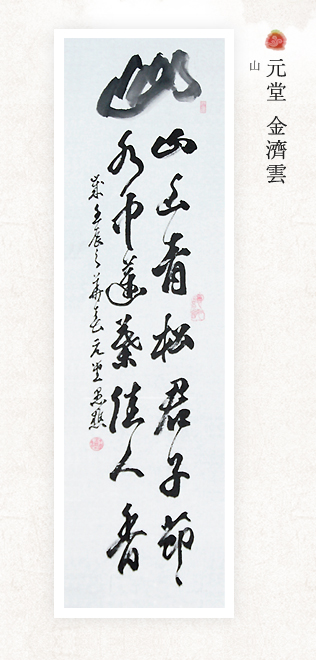 元堂 金濟雲
山
山
山青松君子節
水中蓮葉佳人香
歲壬辰之元堂